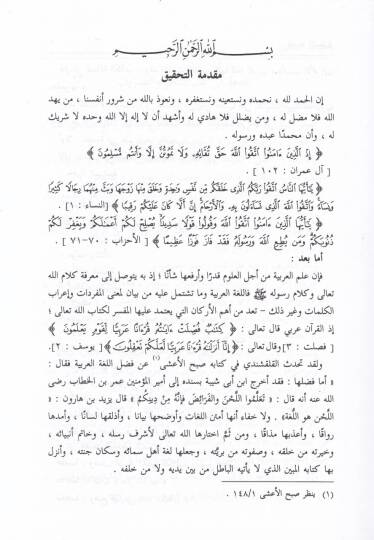 بسم الله الرحمن الرحيم
مقدمة التحقيق
إن الحمد لله ، نحمده ونستعينه ونستغفره ، ونعوذ بالله من شرور أنفسنا ، من يهد
الله فلا مضل له ، ومن يضلل فلا هادي له وأشهد أن لا إله إلا الله وحده لا شريك
له ، وأن محمدًا عبده ورسوله .
﴿ يَٰٓأَيُّهَا الَّذِينَ ءَامَنُوا اتَّقُوا اللَّهَ حَقَّ تُقَاتِهِ وَلَا تَمُوتُنَّ إِلَّا وَأَنتُم مُّسْلِمُونَ ﴾
[ آل عمران : ١٠٢ ] .
﴿ يَٰٓأَيُّهَا النَّاسُ اتَّقُوا رَبَّكُمُ الَّذِي خَلَقَكُم مِّن نَّفْسٍ وَٰحِدَةٍ وَخَلَقَ مِنْهَا زَوْجَهَا وَبَثَّ مِنْهُمَا رِجَالًا كَثِيرًا
وَنِسَآءً وَاتَّقُوا اللَّهَ الَّذِي تَسَآءَلُونَ بِهِ وَالْأَرْحَامَ إِنَّ اللَّهَ كَانَ عَلَيْكُمْ رَقِيبًا ﴾ [النساء : ١] .
﴿ يَٰٓأَيُّهَا الَّذِينَ ءَامَنُوا اتَّقُوا اللَّهَ وَقُولُوا قَوْلًا سَدِيدًا يُصْلِحْ لَكُمْ أَعْمَٰلَكُمْ وَيَغْفِرْ لَكُمْ
ذُنُوبَكُمْ وَمَن يُطِعِ اللَّهَ وَرَسُولَهُ فَقَدْ فَازَ فَوْزًا عَظِيمًا ﴾ [ الأحزاب : ٧٠-٧١ ] .
أما بعد :
فإن علم العربية من أجل العلوم قدرًا وأرفعها شأنًا ؛ إذ به يتوصل إلى معرفة كلام الله
تعالى وكلام رسوله ﷺ فاللغة العربية وما تشتمل عليه من بيان لمعنى المفردات وإعراب
الكلمات وغير ذلك – تعد من أهم الأركان التي يعتمد عليها المفسر لكتاب الله تعالى ؛
إذ القرآن عربي قال تعالى : ﴿ كِتَٰبٌ فُصِّلَتْ ءَايَٰتُهُ قُرْءَانًا عَرَبِيًّا لِّقَوْمٍ يَعْلَمُونَ ﴾
[ فصلت : ٣] وقال تعالى : ﴿إِنَّآ أَنزَلْنَٰهُ قُرْءَٰنًا عَرَبِيًّا لَّعَلَّكُمْ تَعْقِلُونَ﴾ [ يوسف : ٢].
ولقد تحدث القلقشندي في كتابه صبح الأعشى(١) عن فضل اللغة العربية فقال :
« أما فضلها : فقد أخرج ابن أبي شيبة بسنده إلى أمير المؤمنين عمر بن الخطاب رضى
الله عنه أنه قال : « تَعَلَّمُوا اللَّحْنَ والفَرَائِضَ فإِنَّهُ مِنْ دِينِكُمْ » قال يزيد بن هارون : «
اللَّحْن هو اللُّغة» . ولا خفاء أنها أمتن اللغات وأوضحها بيانا ، وأذلقها لسانًا ، وأمدها
رواقًا ، وأعذبها مذاقًا ، ومن ثَمَّ اختارها الله تعالى لأشرف رسله ، وخاتم أنبيائه ،
وخيرته من خلقه ، وصفوته من بريَّته ، وجعلها لغة أهل سمائه وسكان جنته ، وأنزل
بها كتابه المبين الذي لا يأتيه الباطل من بين يديه ولا من خلفه .
(١) ينظر صبح الأعشى ١٤٨/١ .